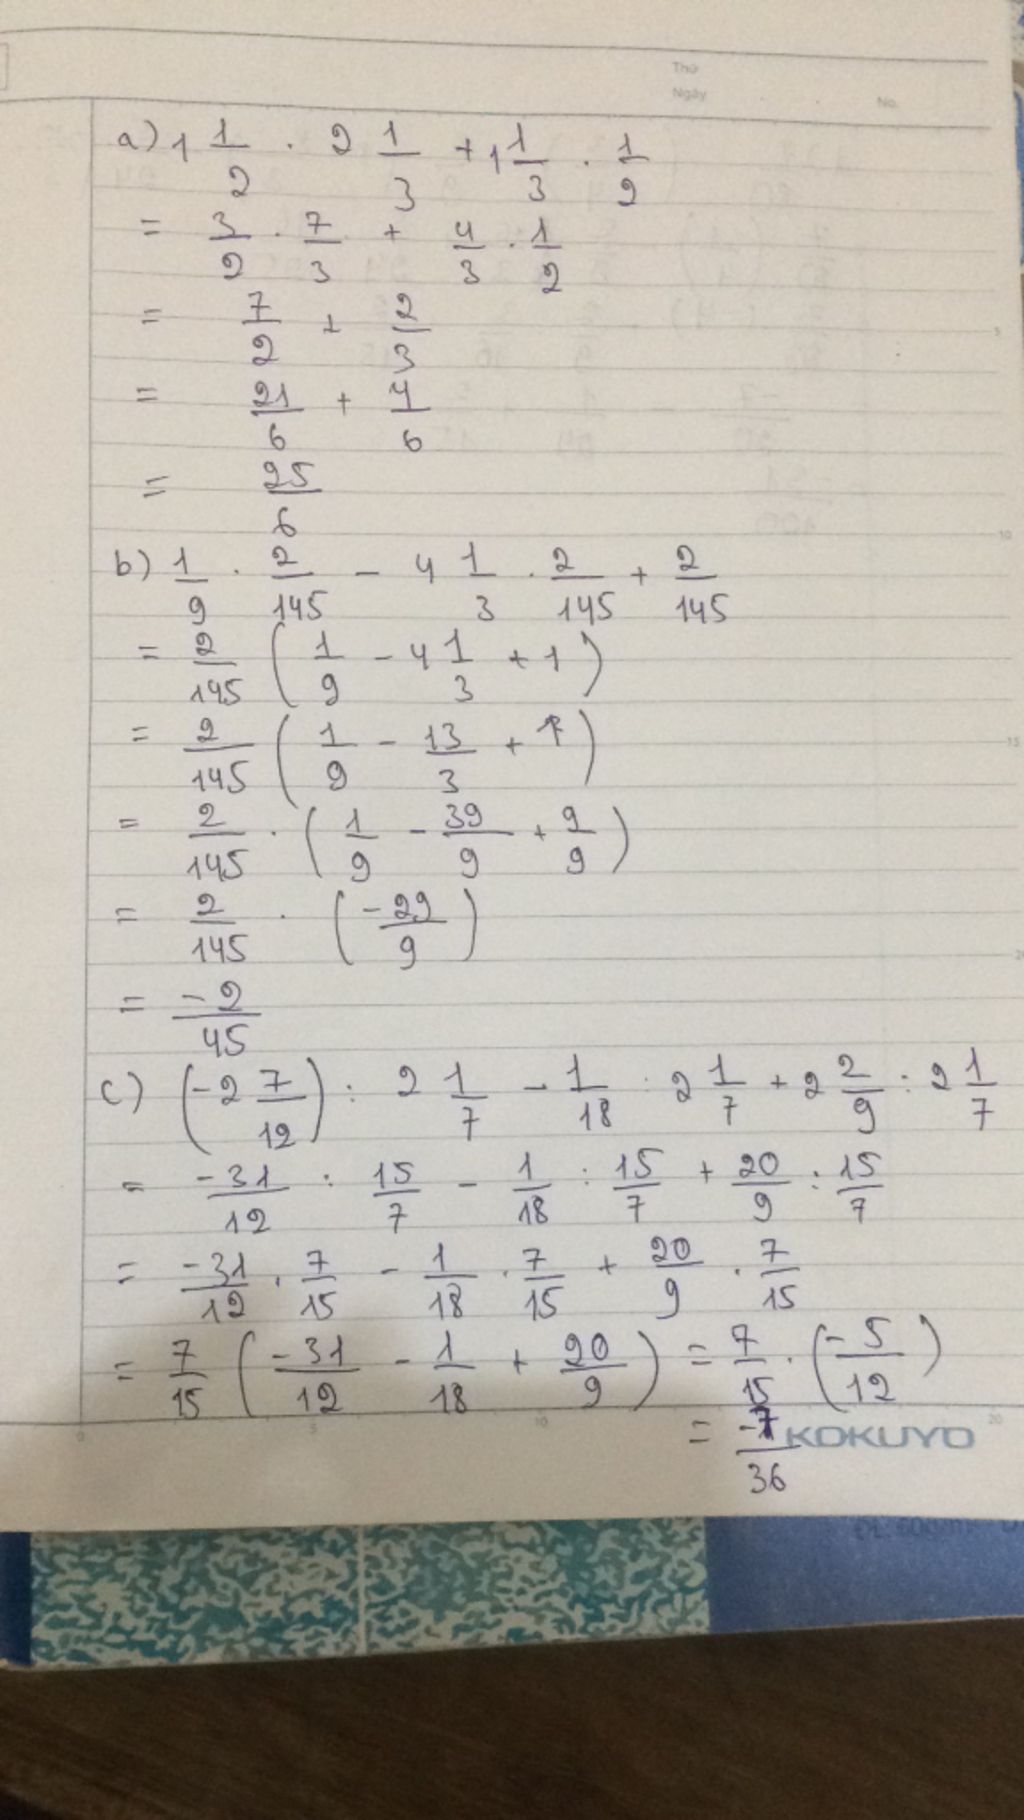 Thứ
Ngày
No.
a) 1 1/2 . 2 1/3 + 1 1/3 . 1/2
= 3/2 . 7/3 + 4/3 . 1/2
= 7/2 + 2/3
= 21/6 + 4/6
= 25/6
b) 1/9 . 2/145 - 4 1/3 . 2/145 + 2/145
= 2/145 ( 1/9 - 4 1/3 + 1 )
= 2/145 ( 1/9 - 13/3 + 1 )
= 2/145 . ( 1/9 - 39/9 + 9/9 )
= 2/145 . ( -29/9 )
= -2/45
c) ( -2 7/12 ) : 2 1/7 - 1/18 : 2 1/7 + 2 2/9 : 2 1/7
= -31/12 : 15/7 - 1/18 : 15/7 + 20/9 : 15/7
= -31/12 . 7/15 - 1/18 . 7/15 + 20/9 . 7/15
= 7/15 ( -31/12 - 1/18 + 20/9 ) = 7/15 . ( -5/12 )
= -7/36
KOKUYO